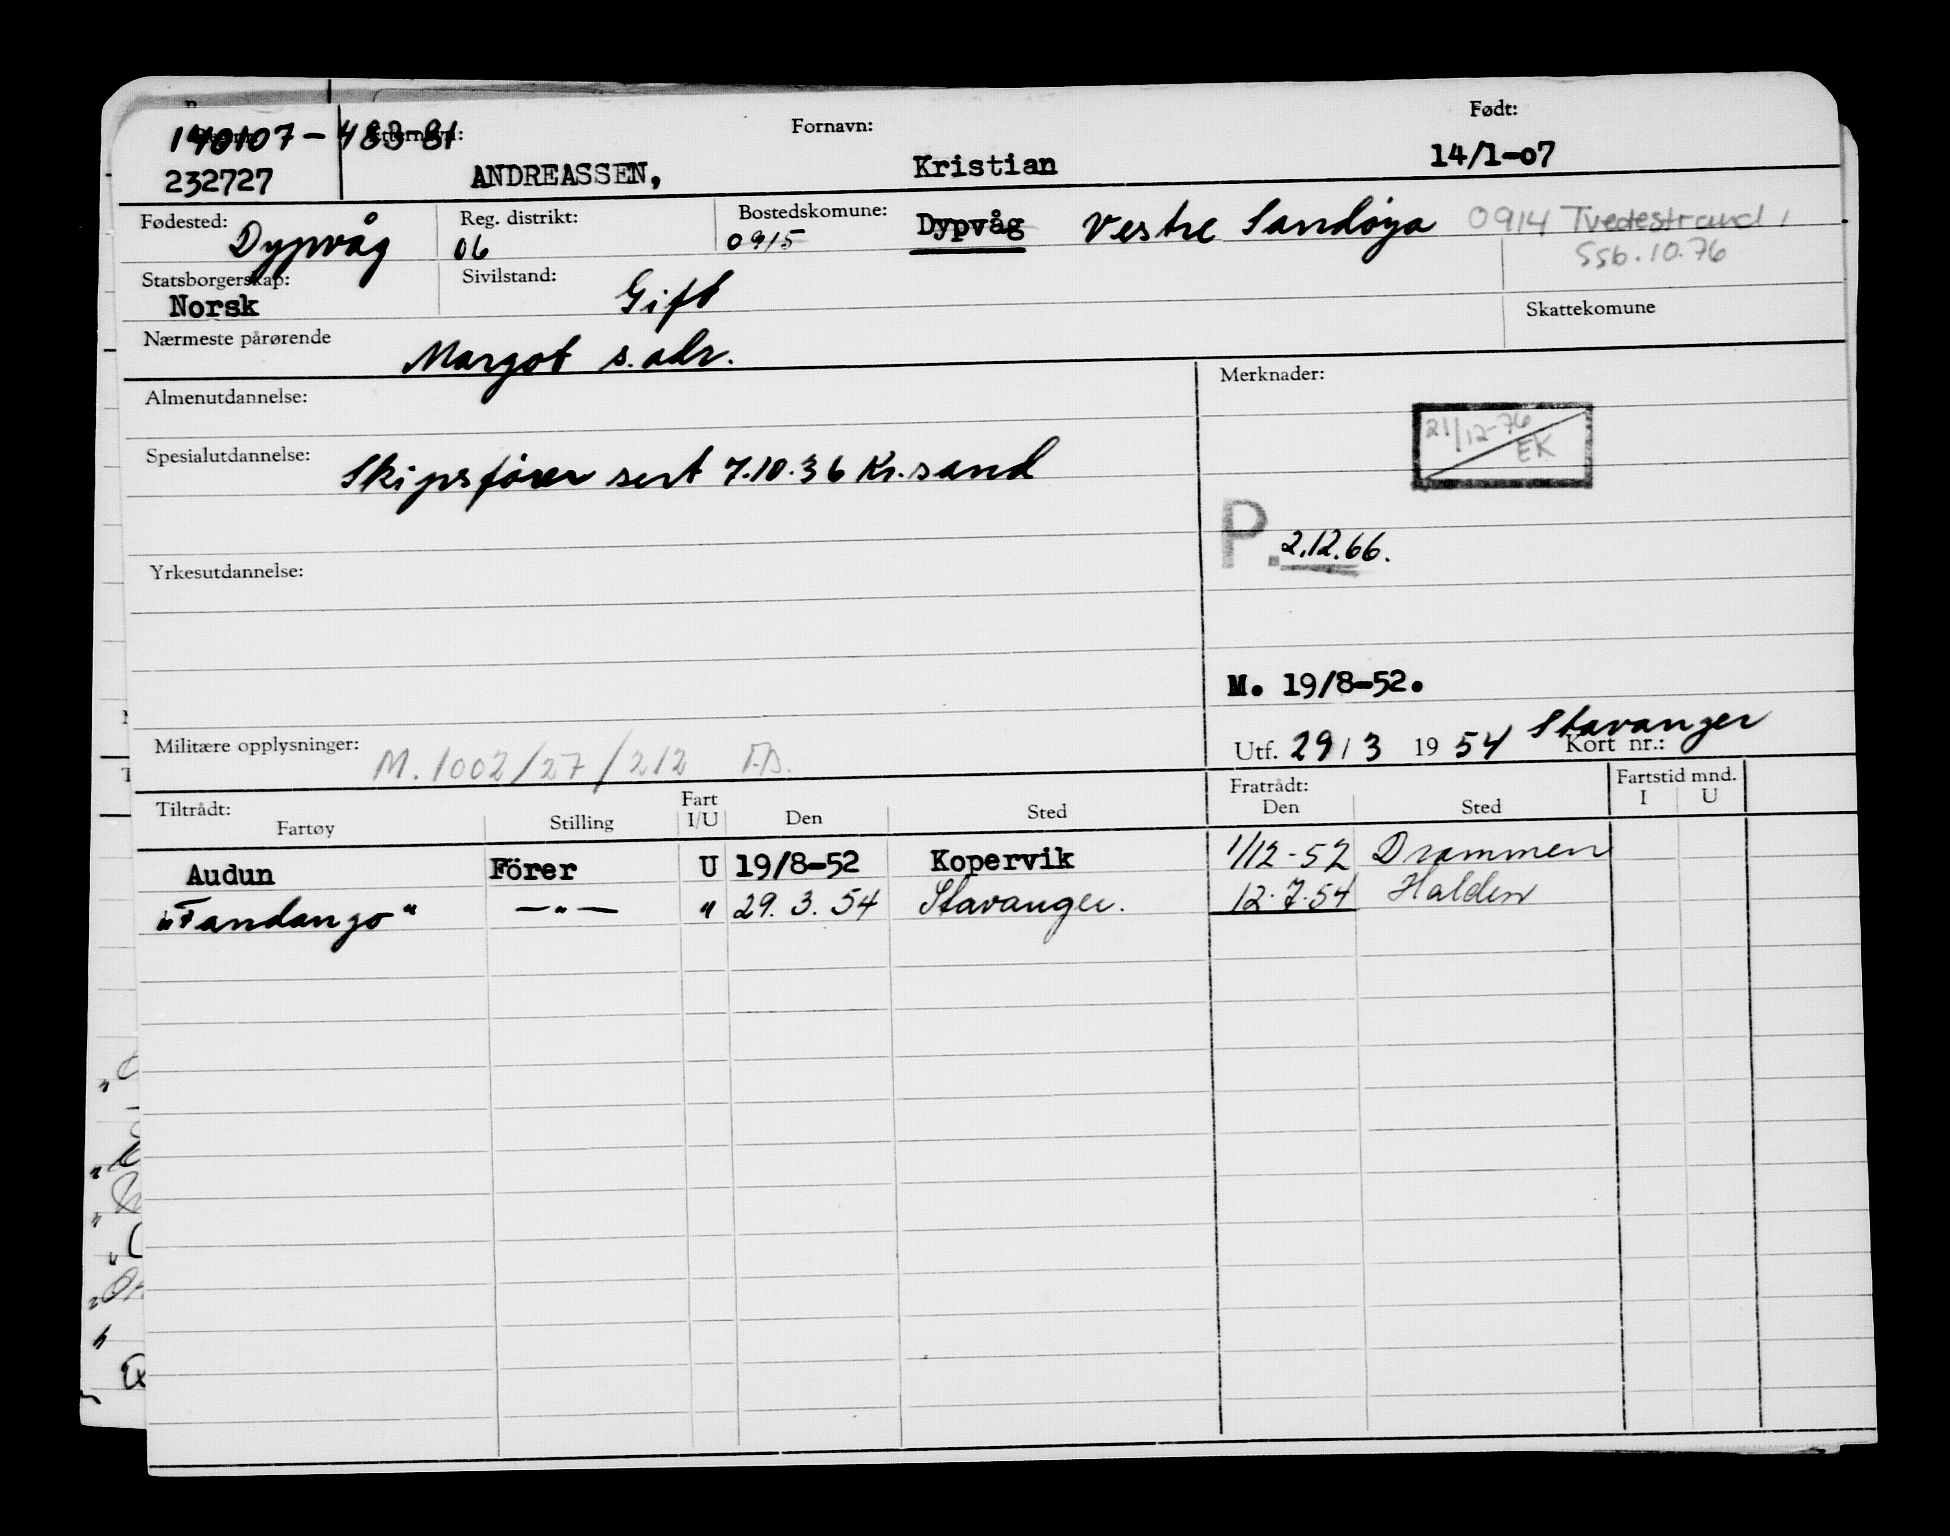 140107-483-81 Etternavn: Fornavn: Født:
232727 ANDREASSEN, Kristian 14/1-07
Fødested: Reg. distrikt: Bostedskomune:
Dypvåg 06 0915 Dypvåg Vestre Sandøya 0914 Tvedestrand
Ssb. 10.76
Statsborgerskap: Sivilstand:
Norsk Gift Skattekomune
Nærmeste pårørende Margot s. adr.
Almenutdannelse: Merknader:
21/12-76
EK
Spesialutdannelse: Skipsfører sert 7.10.36 Kr.sand
P. 2.12.66.
Yrkesutdannelse:
M. 19/8-52.
Militære opplysninger: M. 1002/27/212
Utf. 29/3 1954 Kort nr.: Stavanger
Tiltrådt: Fart Fratrådt: Fartstid mnd.
Fartøy Stilling I/U Den Sted Den Sted I U
Audun Förer U 19/8-52 Kopervik 1/12-52 Drammen
"Fandango" —"— " 29.3.54 Stavanger. 12.7.54 Halden